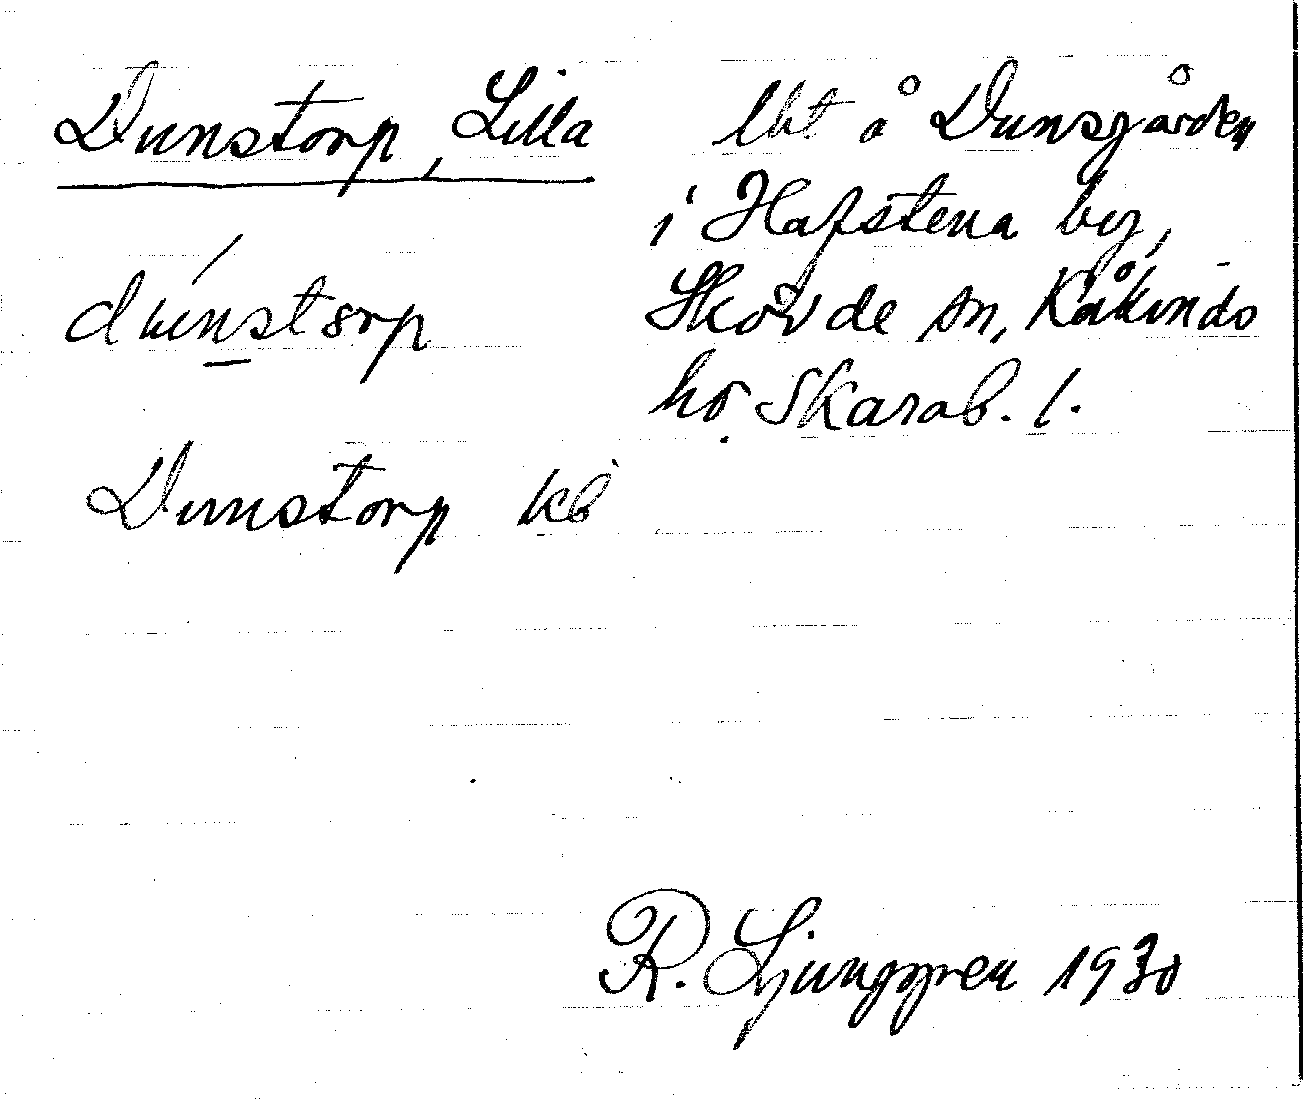 Dunstorp, Lilla
dúnstorp
Dunstorp kb
lht å Dunsgården
i Hafstena by,
Skövde sn, Kåkinds
hd. Skarab. l.
R. Ljunggren 1930